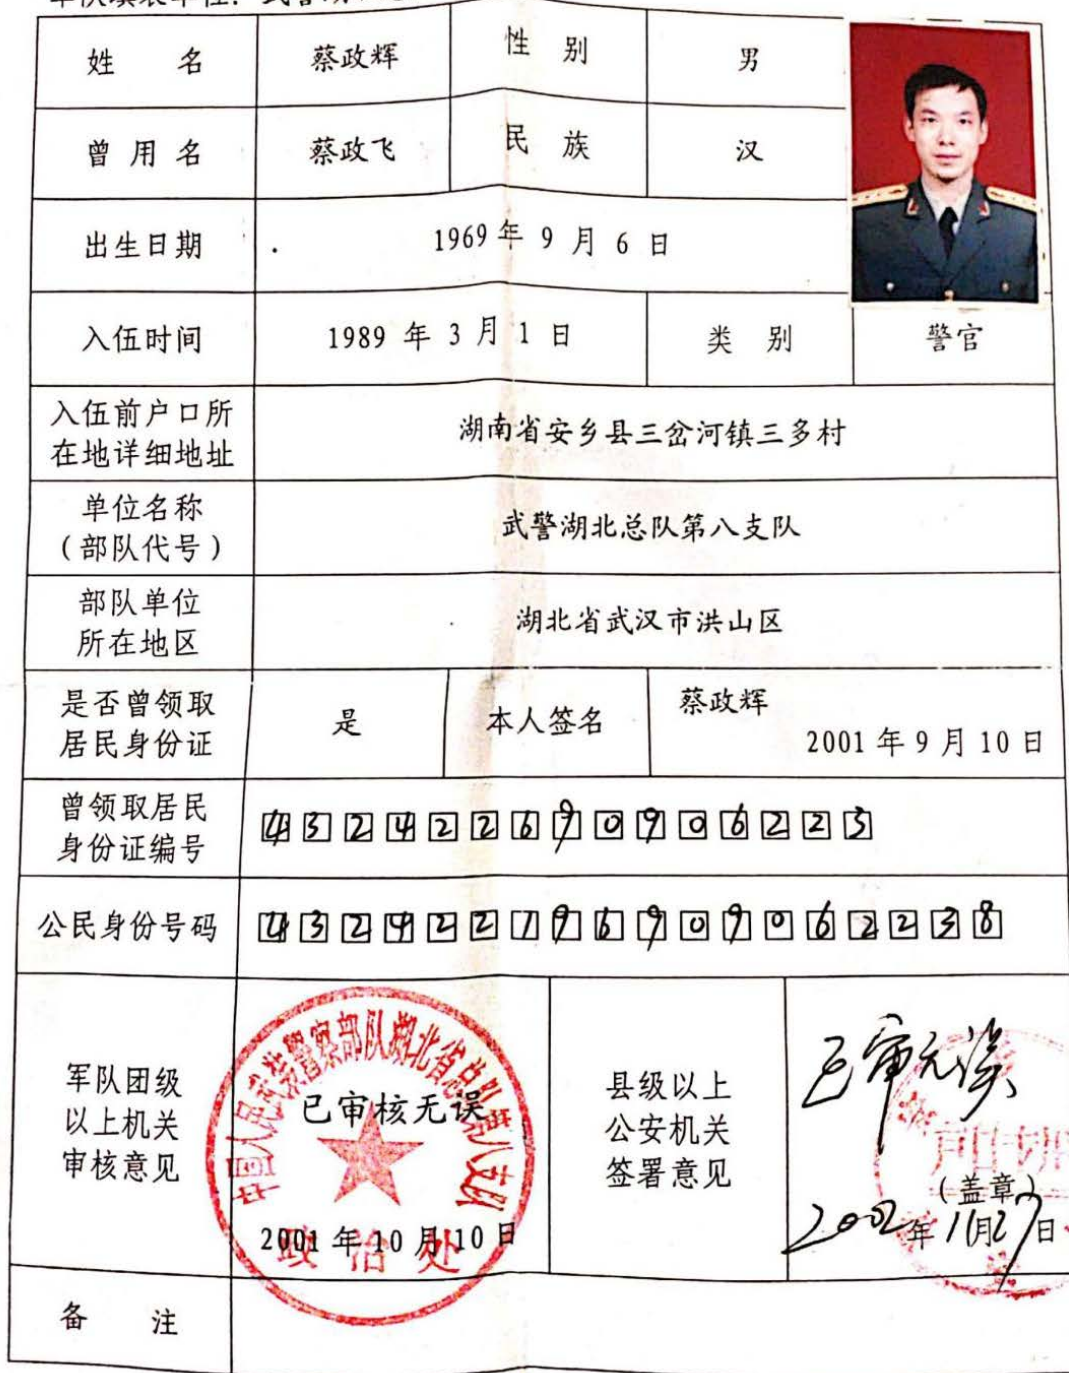 姓 名 蔡政辉 性 别 男
曾 用 名 蔡政飞 民 族 汉
出生日期 1969 年 9 月 6 日
入伍时间 1989 年 3 月 1 日 类 别 警官
入伍前户口所
在地详细地址
湖南省安乡县三岔河镇三多村
单位名称
（部队代号）
武警湖北总队第八支队
部队单位
所在地区
湖北省武汉市洪山区
是否曾领取
居民身份证
是
本人签名
蔡政辉
2001 年 9 月 10 日
曾领取居民
身份证编号
432422690906223
公民身份号码 432422196909062238
军队团级
以上机关
审核意见
中国人民武装警察部队湖北省总队第八支队
已审核无误
2001 年 10 月 10 日
政治处
县级以上
公安机关
签署意见
已审无误
（盖章）
2002年11月27日
备 注